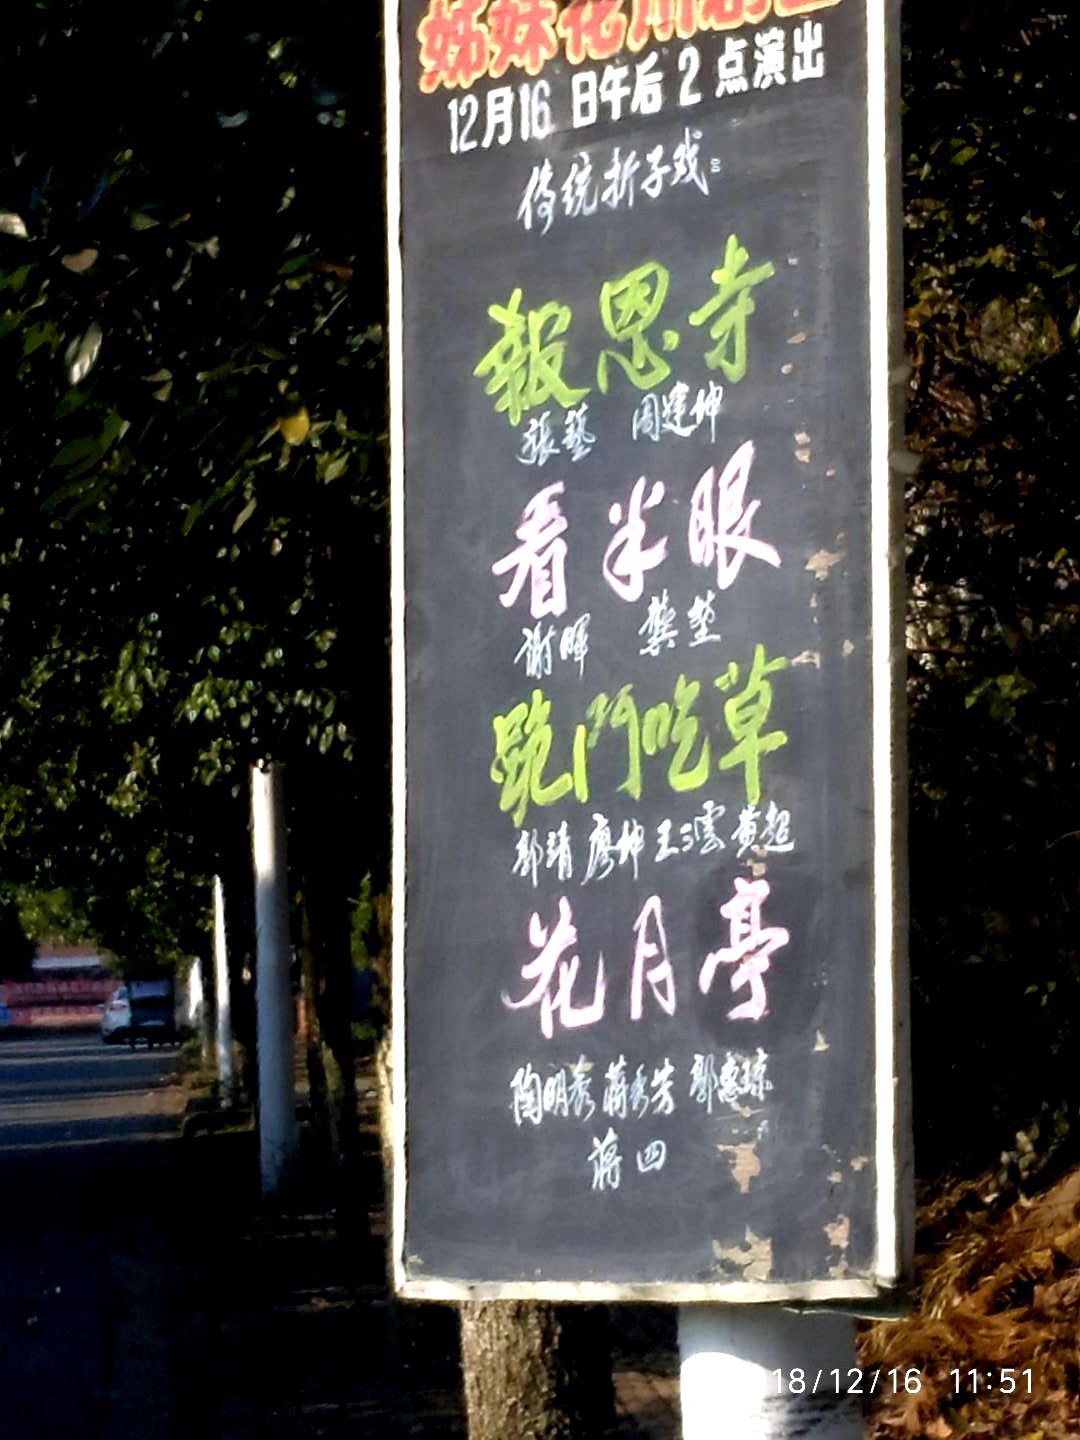 姊妹花川剧团
12月16日午后2点演出
传统折子戏:
報恩寺
張藝 周建坤
看半眼
谢暉 龚堃
跪門吃草
郭靖 廖坤 王三雲 黄超
花月亭
陶明秀 蒋秀芳 郭惠琼
蒋四
18/12/16 11:51